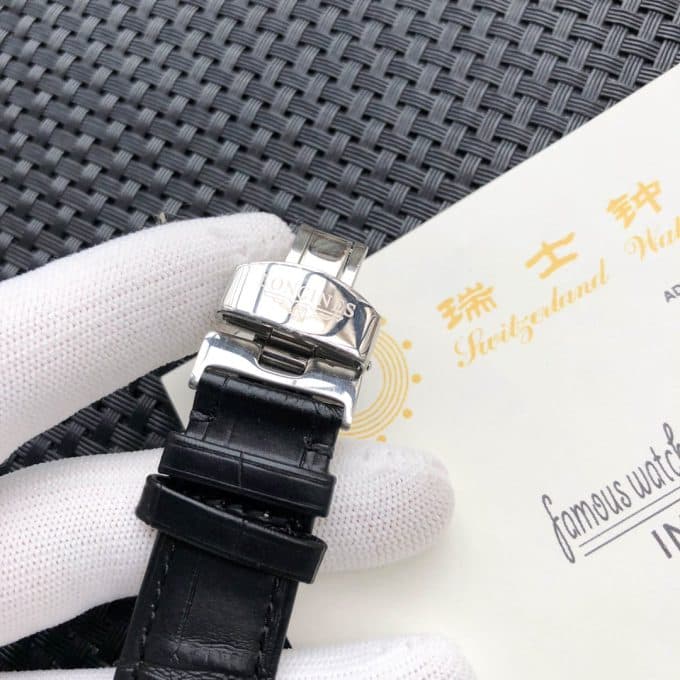 LONGINES
瑞士钟
Switzerland Wat
AD
famous watch
IN